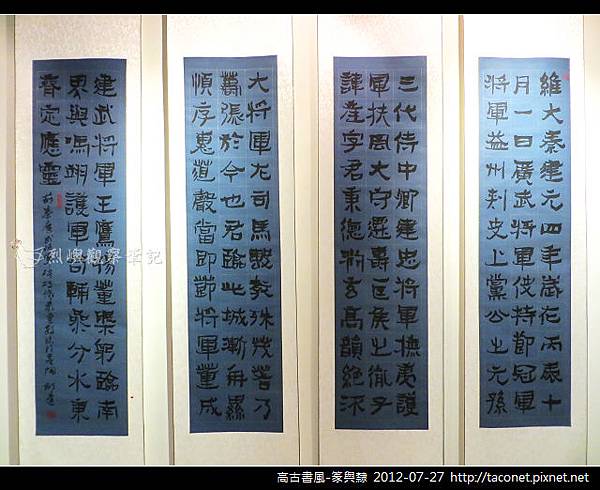 維大秦建元四年歲在丙辰十
月一日廣武將軍使持節冠軍
將軍益州刺史上黨公之元孫
三代侍中卿建忠將軍撫夷護
軍扶風太守遷壽匡侯之胤子
諱產字君秉德淵玄高韻絕
大將軍左司馬 教殊茂著乃
萬張於今也君臨此城漸冉累
順序惠道聲當即節將軍董成
建武將軍王鷹揚董眾躬臨南
界與馮翊護軍苟輔眾分水東
脊定應靈
烈嶼觀察筆記
高古書風-篆與隸 2012-07-27 http://taconet.pixnet.net